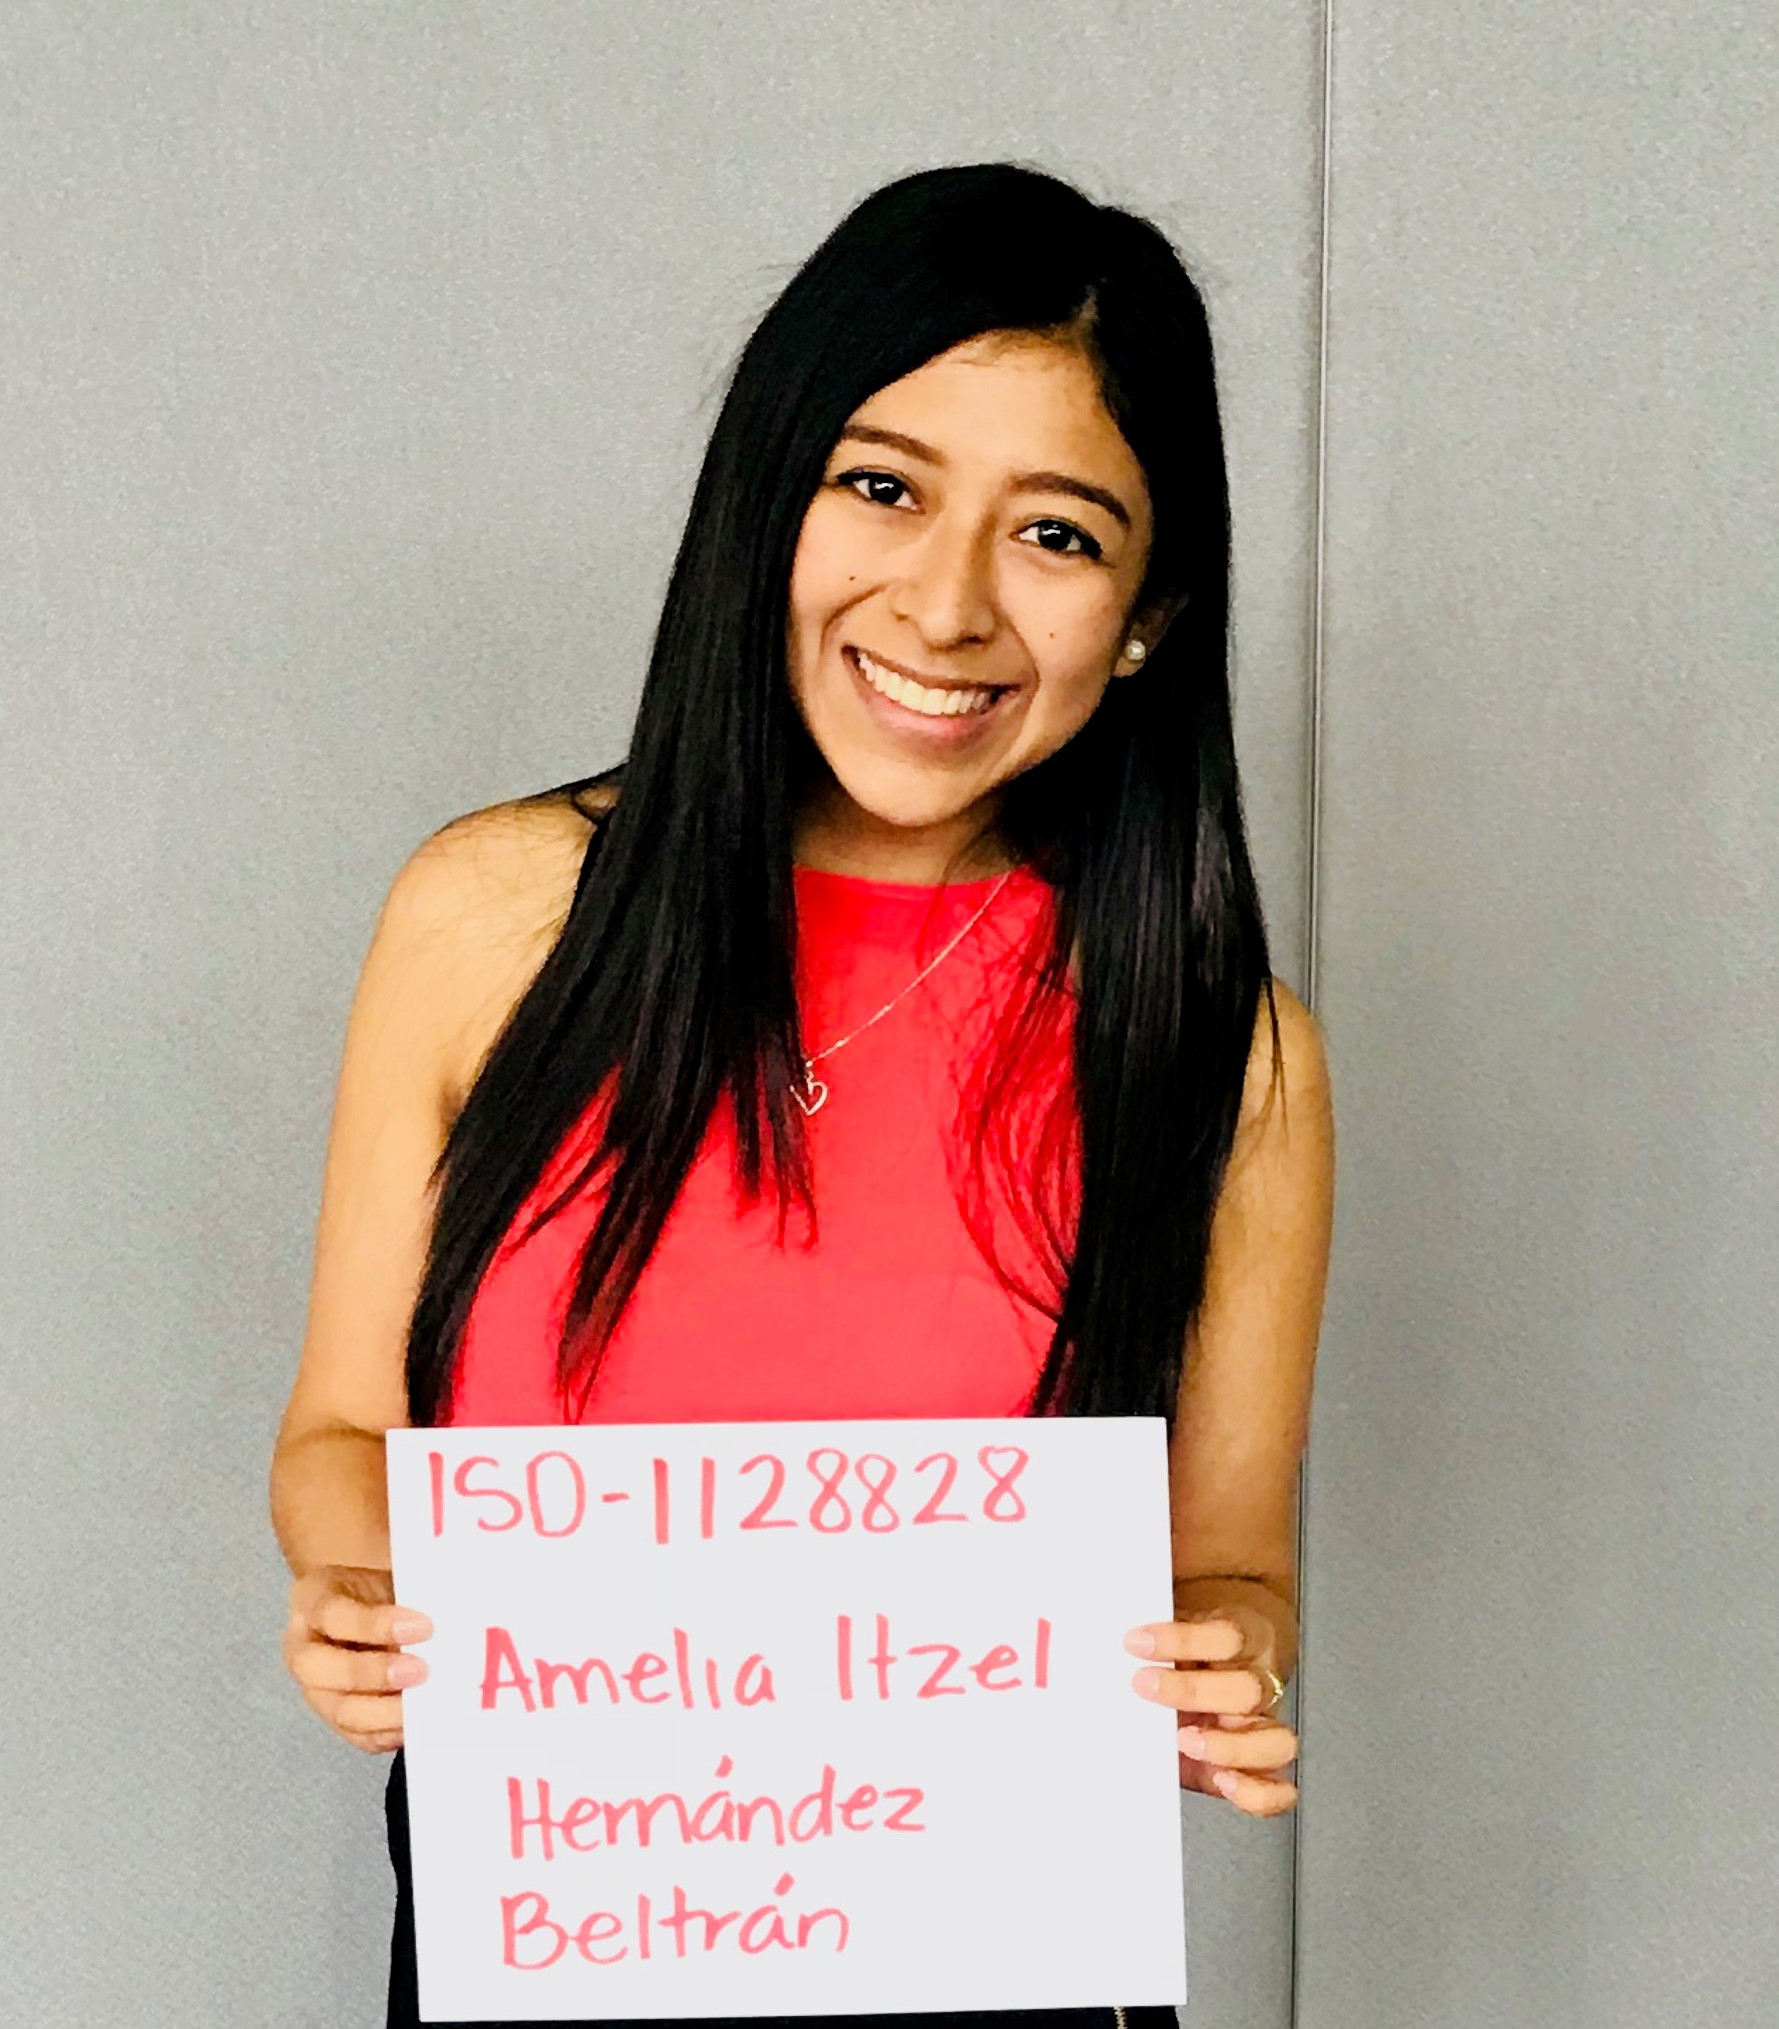 ISD-1128828
Amelia Itzel
Hernández
Beltrán